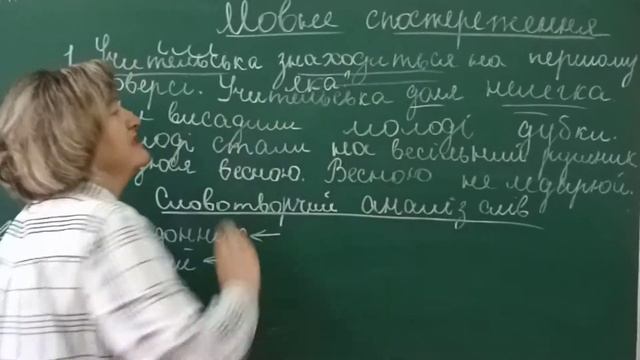 Мовне спостереження
1. Учительська знаходиться на першому
яка?
поверсі. Учительська доля нелегка
висадили молоді дубки.
стали на весільний рушник
весною. Весною не
Словотворчий аналіз слів